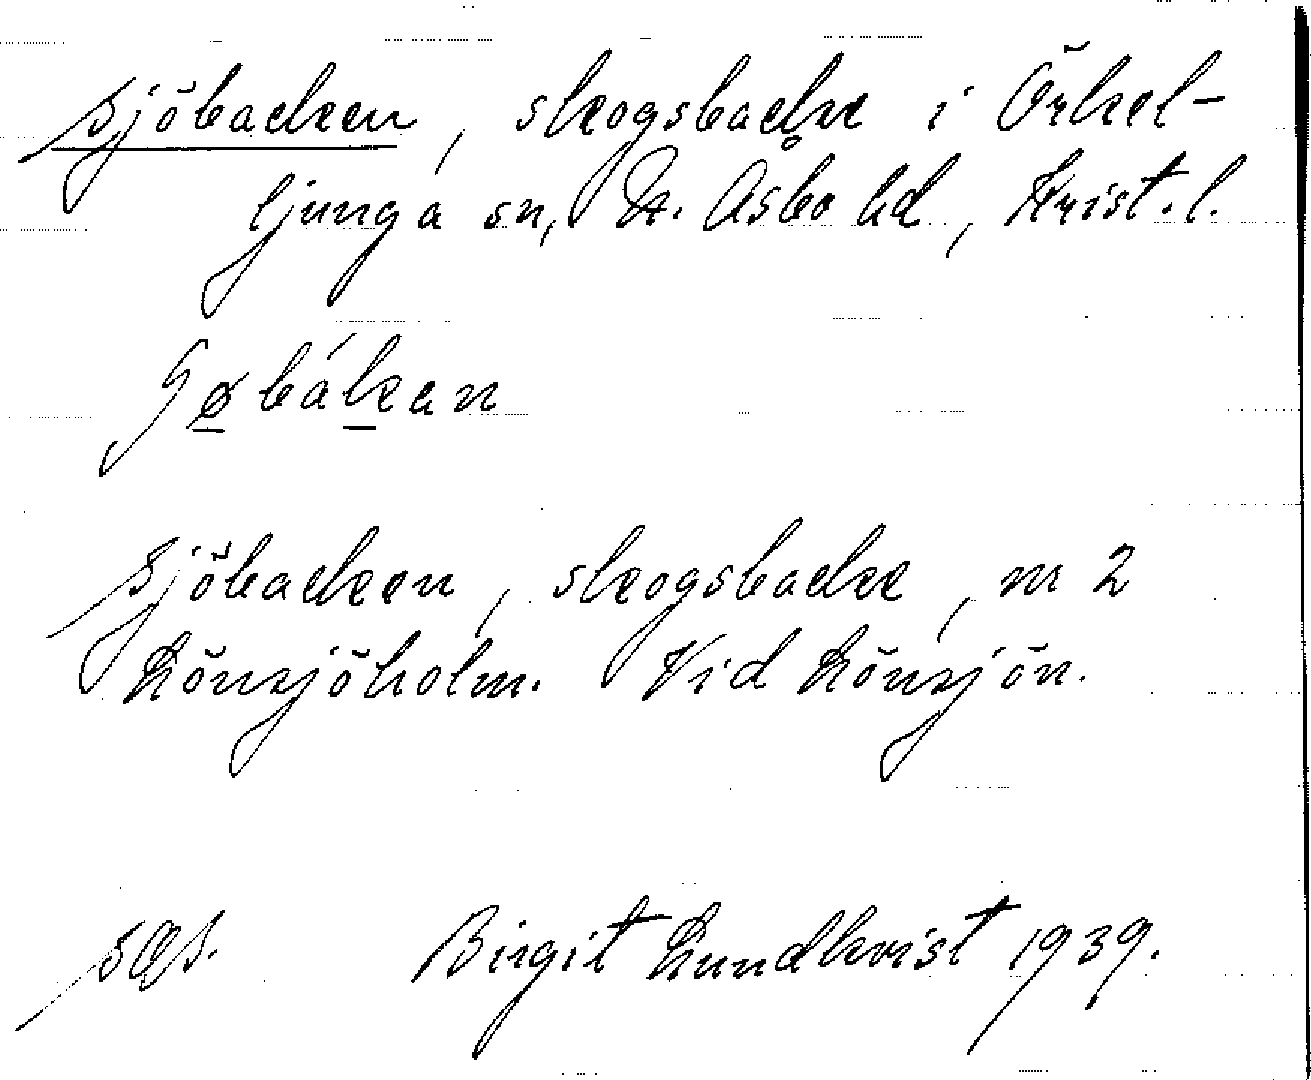 Sjöbacken, skogsbacke i Örkel-
ljunga sn, N. Åsbo hd, Krist. l.
bákan
Sjöbacken, skogsbacke, nr 2
Lönsjöholm. Vid Lönsjön.
Birgit Lundkvist 1939.